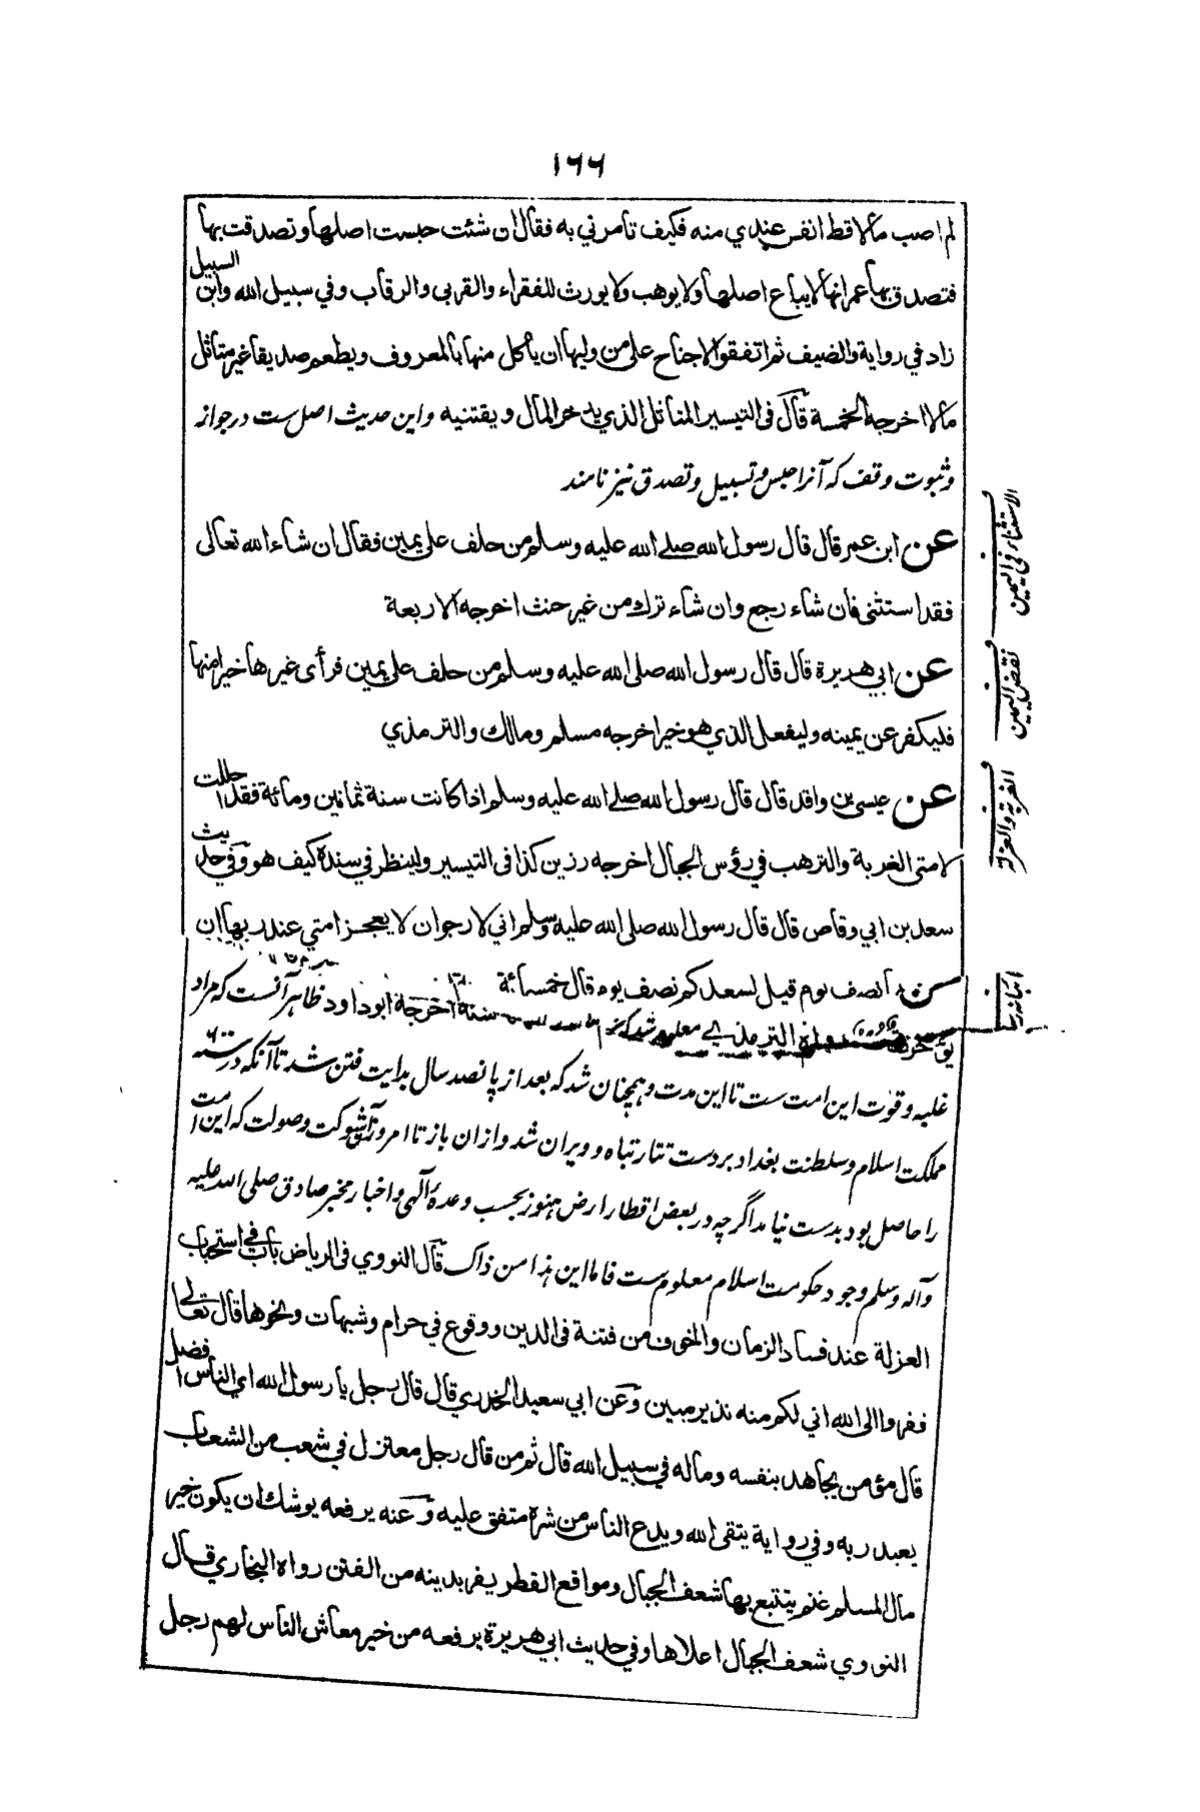 ١٦٦
لم اصب مالا قط انفس عندي منه فكيف تامرني به فقال ان شئت حبست اصلها وتصدقت بها
فتصدق بها عمر انها لايباع اصلها ولا يوهب ولا يورث للفقراء والقربى والرقاب وفي سبيل الله وابن السبيل
زاد في رواية والضيف ثم اتفقوا لاجناح على من وليها ان ياكل منها بالمعروف ويطعم صديقا غير متاثل
مالا اخرجه الخمسة قال فى التيسير المتاثل الذي يدخر المال ويقتنيه واين حديث اصل ست در جواز
وثبوت وقف كه آنرا حبس وتسبيل وتصدق نيز نامند
عن ابن عمر قال قال رسول الله صلى الله عليه وسلم من حلف على يمين فقال ان شاء الله تعالى
فقد استثنى فان شاء رجع وان شاء ترك من غير حنث اخرجه الاربعة
عن ابي هريرة قال قال رسول الله صلى الله عليه وسلم من حلف على يمين فرأى غيرها خيرا منها
فليكفر عن يمينه وليفعل الذي هو خير اخرجه مسلم ومالك والترمذي
عن عيسى بن واقد قال قال رسول الله صلى الله عليه وسلم اذا كانت سنة ثمانين ومائة فقد احللت
لامتى الغربة والترهب في رؤس الجبال اخرجه رزين كذا فى التيسير ولينظر في سنده كيف هو وفي حديث
سعد بن ابي وقاص قال قال رسول الله صلى الله عليه وسلم اني لارجو ان لا يعجز امتي عند ربها ان
نصف يوم قيل لسعد كم نصف يوم قال خمسمائة سنة اخرجه ابوداود ظاهر آنست كه مراد
الترمذي معلوم شد كه
غلبه وقوت اين امت ست تا اين مدت وهمچنان شد كه بعد از پانصد سال بدايت فتن شد تا آنكه در ٦٠٠
مملكت اسلام وسلطنت بغداد بر دست تتار تباه وويران شد وازان باز تا امروز آن شوكت وصولت كه اين امت
را حاصل بود بدست نيامد اگرچه در بعض اقطار ارض هنوز بحسب وعدهٔ آلهى واخبار مخبر صادق صلى الله عليه
وآله وسلم وجود حكومت اسلام معلوم ست فاما اين هذا من ذاك قال النووي فى الرياض باب في استحباب
العزلة عند فساد الزمان والخوف من فتنة فى الدين ووقوع في حرام وشبهات ونحوها قال تعالى
ففروا الى الله اني لكم منه نذير مبين وعن ابي سعيد الخدري قال قال رجل يا رسول الله اي الناس افضل
قال مؤمن يجاهد بنفسه وماله في سبيل الله قال ثم من قال رجل معتزل في شعب من الشعاب
يعبد ربه وفي رواية يتقى الله ويدع الناس من شره متفق عليه وعنه يرفعه يوشك ان يكون خير
مال المسلم غنم يتتبع بها شعف الجبال ومواقع القطر يفر بدينه من الفتن رواه البخاري قال
النووي شعف الجبال اعلاها وفي حديث ابي هريرة يرفعه من خير معاش الناس لهم رجل
الاستثناء في اليمين
نقض اليمين
الغربة والعزلة